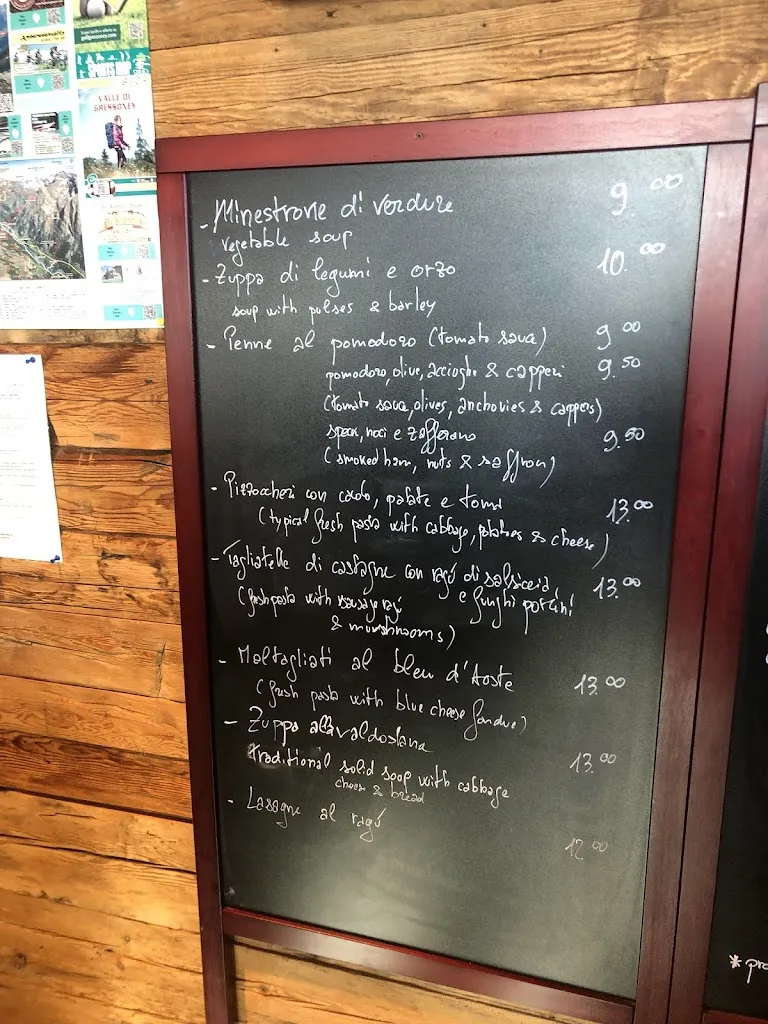 VALLE DI
GRESSONEY
- Minestrone di verdure 9.00
vegetable soup
- Zuppa di legumi e orzo 10.00
soup with pulses & barley
- Penne al pomodoro (tomato sauce) 9.00
pomodoro, olive, acciughe & capperi 9.50
(tomato sauce, olives, anchovies & cappers)
speck, noci e zafferano 9.50
(smoked ham, nuts & saffron)
- Pizzoccheri con cavolo, patate e toma 13.00
(typical fresh pasta with cabbage, potatoes & cheese)
- Tagliatelle di castagne con ragú di salsiccia 13.00
e funghi porcini
(fresh pasta with sausage ragú
& murshrooms)
- Maltagliati al bleu d'Aoste 13.00
(fresh pasta with blue cheese fondue)
- Zuppa alla valdostana
traditional solid soop with cabbage 13.00
cheese & bread
- Lasagne al ragú 12.00
* pro